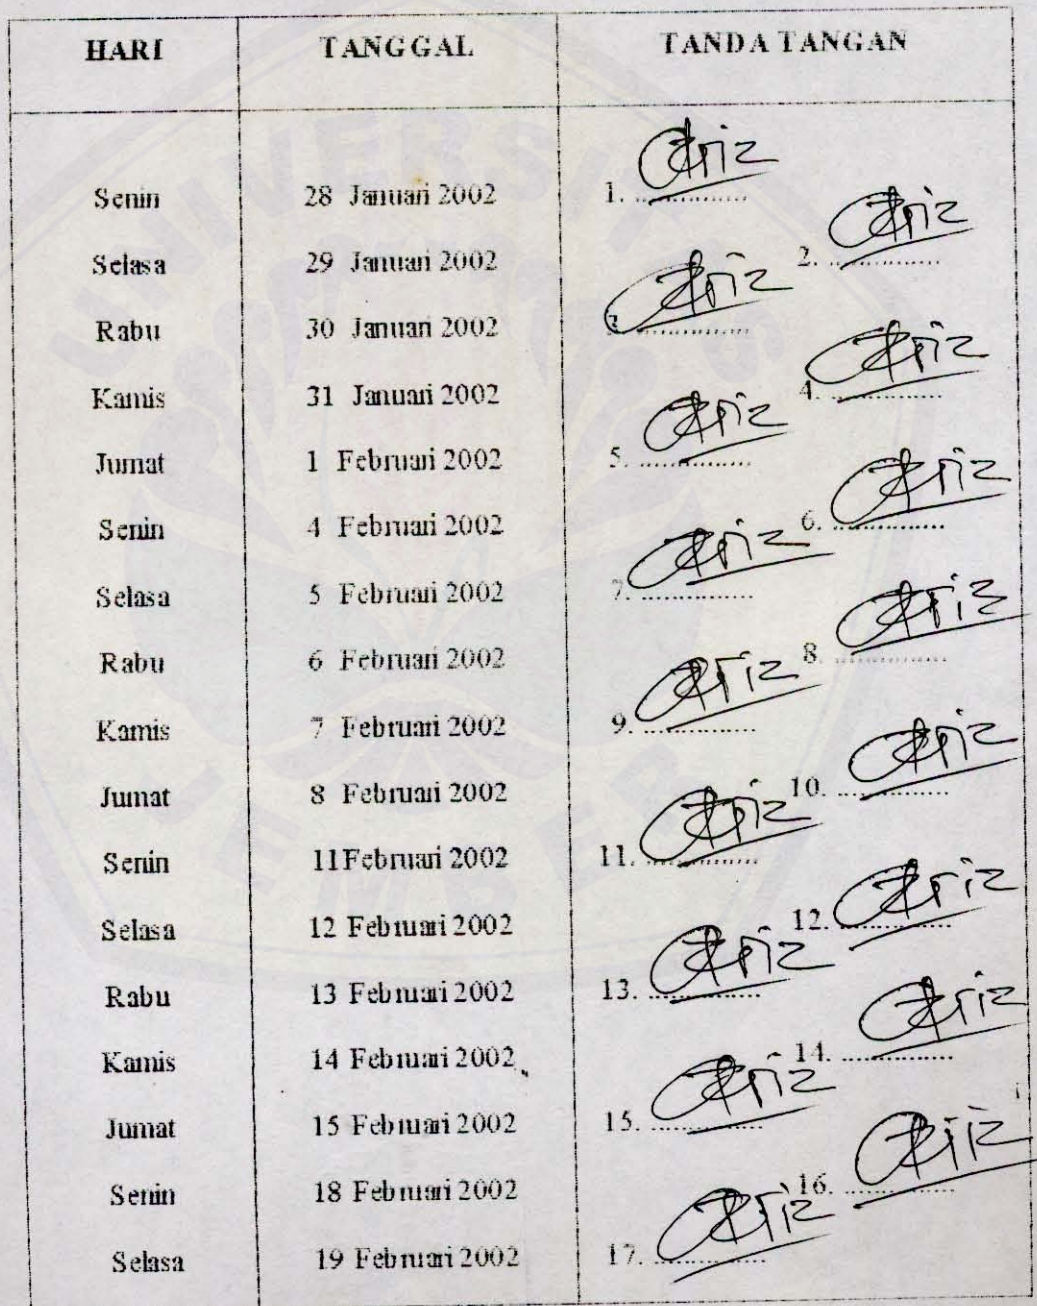 HARI TANGGAL TANDA TANGAN
Senin 28 Januari 2002 1. ................
Selasa 29 Januari 2002 2. ................
Rabu 30 Januari 2002 3. ................
Kamis 31 Januari 2002 4. ................
Jumat 1 Februari 2002 5. ................
Senin 4 Februari 2002 6. ................
Selasa 5 Februari 2002 7. ................
Rabu 6 Februari 2002 8. ................
Kamis 7 Februari 2002 9. ................
Jumat 8 Februari 2002 10. ................
Senin 11Februari 2002 11. ................
Selasa 12 Februari 2002 12. ................
Rabu 13 Februari 2002 13. ................
Kamis 14 Februari 2002 14. ................
Jumat 15 Februari 2002 15. ................
Senin 18 Februari 2002 16. ................
Selasa 19 Februari 2002 17. ................
UNIVERSITAS
JEMBER